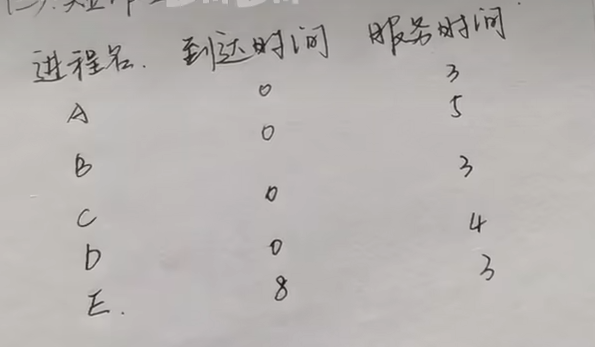 进程名. 到达时间 服务时间
A 0 3
B 0 5
C 0 3
D 0 4
E. 8 3